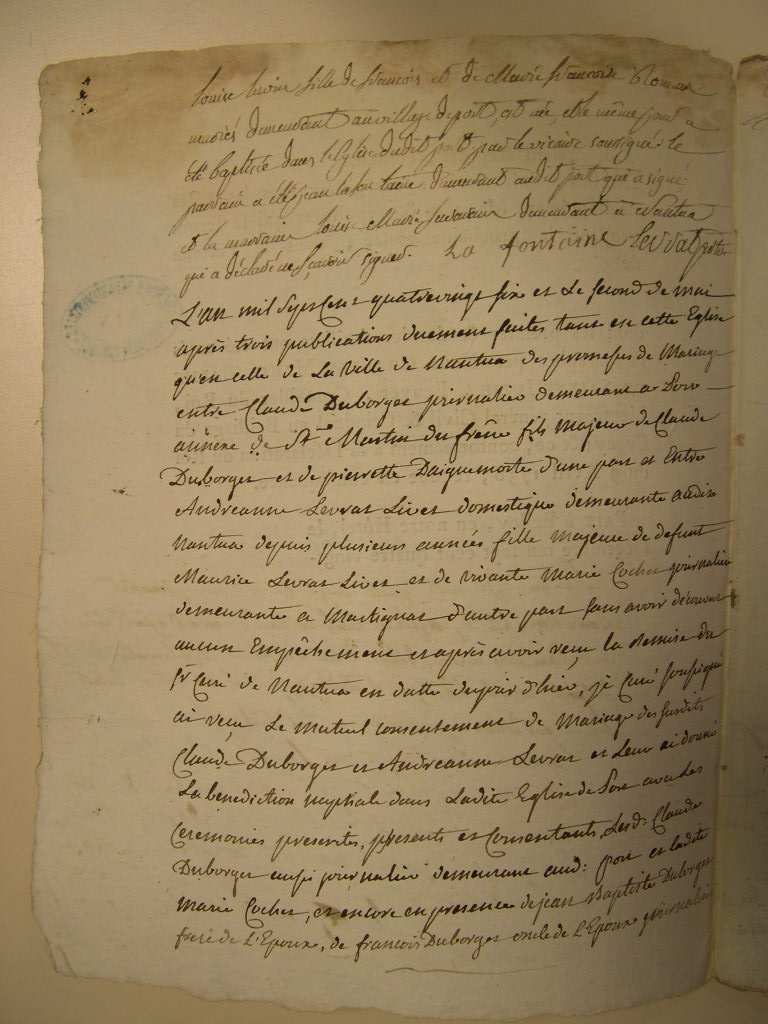 Louise Louise fille de francois et de Marie francoise Roman
mariés demeurant au village de port, est née, et le même jour a
été baptisée dans l'eglise dudit port par le vicaire soussigné: le
parrain a été jean demeurant audit port qui a signé
et la marraine louise Marie demeurant a Nantua
qui a déclaré ne scavoir signer. La fontaine Levrat
L'an mil sept cent quatrevingt six et Le second de mai
après trois publications duement faites tant en cette Eglise
qu'en celle de La Ville de Nantua des promesses de Mariage
entre Claude Duborget journalier demeurant a Pore
annexe de St Martin du frêne fils Majeur de Claude
Duborget et de pierrette Daiguemorte d'une part et Entre
Andreanne Levrat Livet domestique demeurante audit
Nantua depuis plusieurs années fille majeure de defunt
Maurice Levrat Livet et de vivante Marie Cochet journaliere
demeurante a Martignat d'autre part sans avoir découvert
aucun Empêchement et après avoir reçu la Remise du
sr Curé de Nantua en datte du jour d'hier, je Curé soussigné
ai reçu Le mutuel consentement de Mariage des susdits
Claude Duborget et Andreanne Levrat et Leur ai donné
La benediction nuptiale dans Ladite Eglise de Pore avec Les
Ceremonies prescrites, présents et Consentants, Lesd: Claude
Duborget aussi journalier demeurant aud: port et ladite
Marie Cochet, et encore en presence de jean Baptiste Duborget
frere de L'Epoux, de francois Duborget oncle de L'Epoux journalier